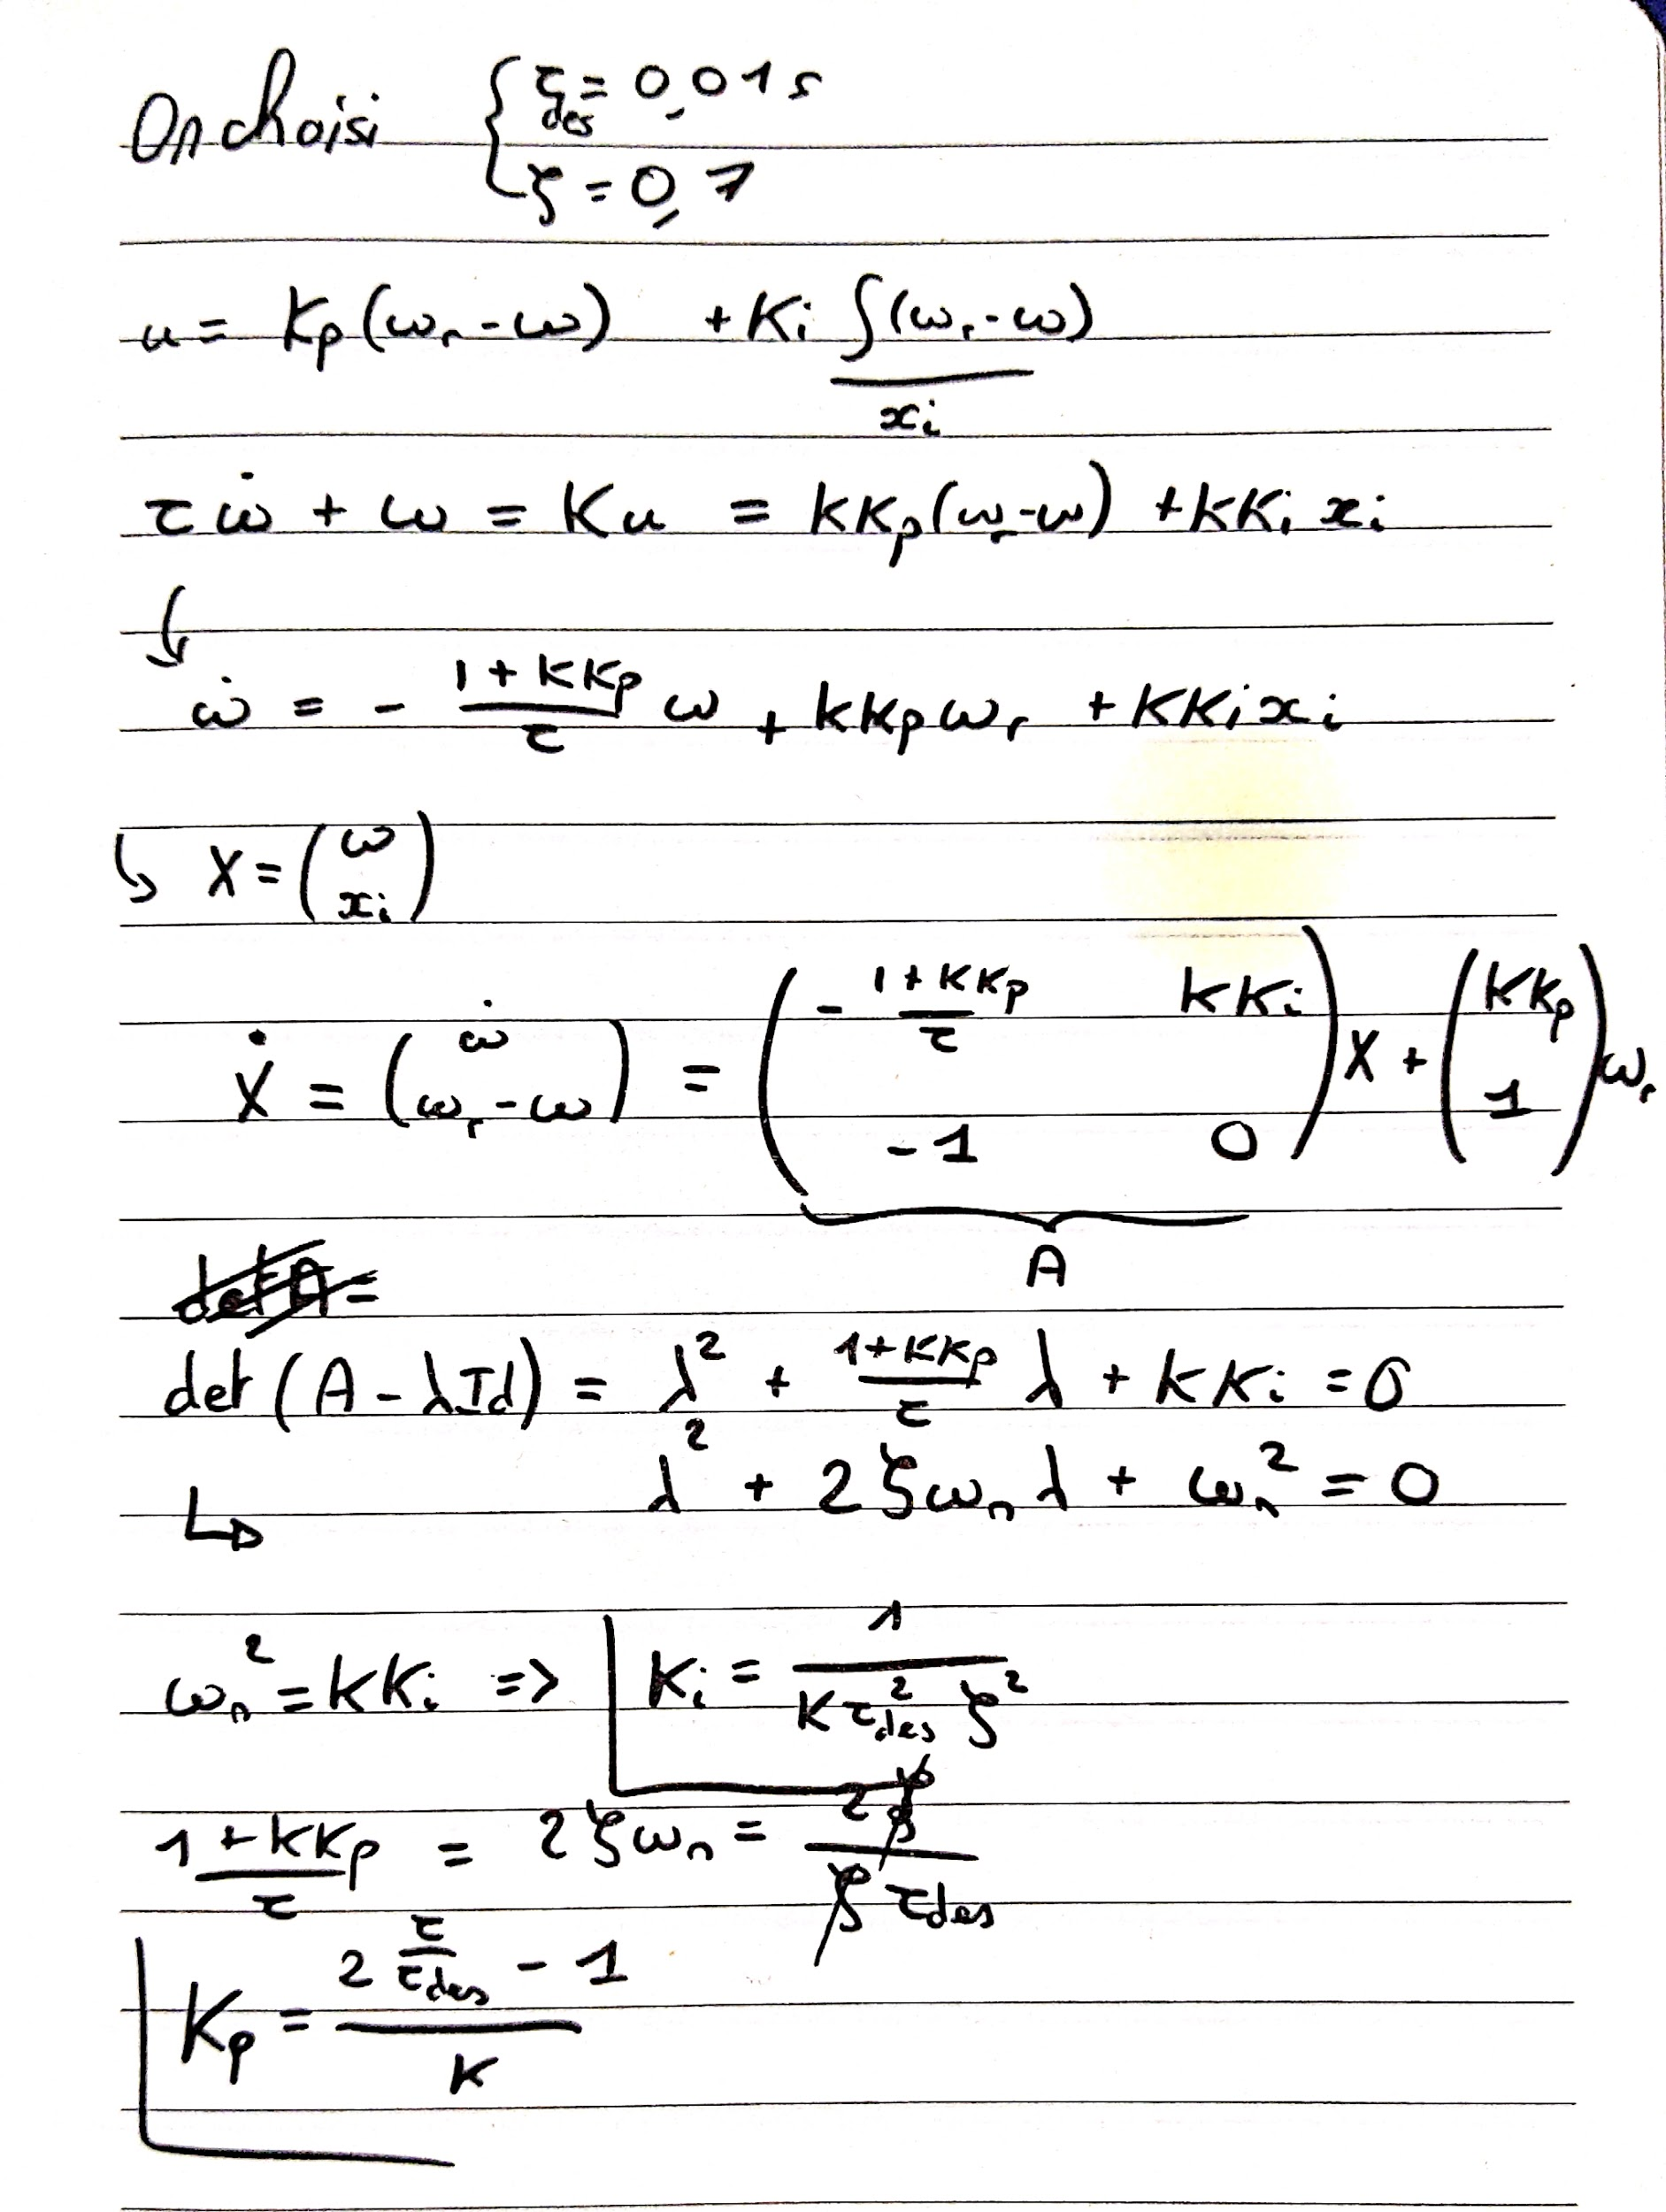 On choisi { τdes = 0,01 s
ζ = 0,7
u = Kp(ωr - ω) + Ki ∫(ωr - ω)
xi
τ ω̇ + ω = Ku = KKp(ωr - ω) + KKi xi
↳ ω̇ = - (1 + KKp)/τ ω + KKp ωr + KKi xi
↳ X = (ω ; xi)
Ẋ = (ω̇ ; ωr - ω) = (-(1 + KKp)/τ KKi ; -1 0) X + (KKp ; 1) ωr
A
det A =
det(A - λId) = λ² + (1 + KKp)/τ λ + KKi = 0
↳ λ² + 2ζωn λ + ωn² = 0
ωn² = KKi => Ki = 1/(K τdes² ζ²)
(1 + KKp)/τ = 2ζωn = 2ζ/(ζ τdes)
Kp = (2 τ/τdes - 1)/K